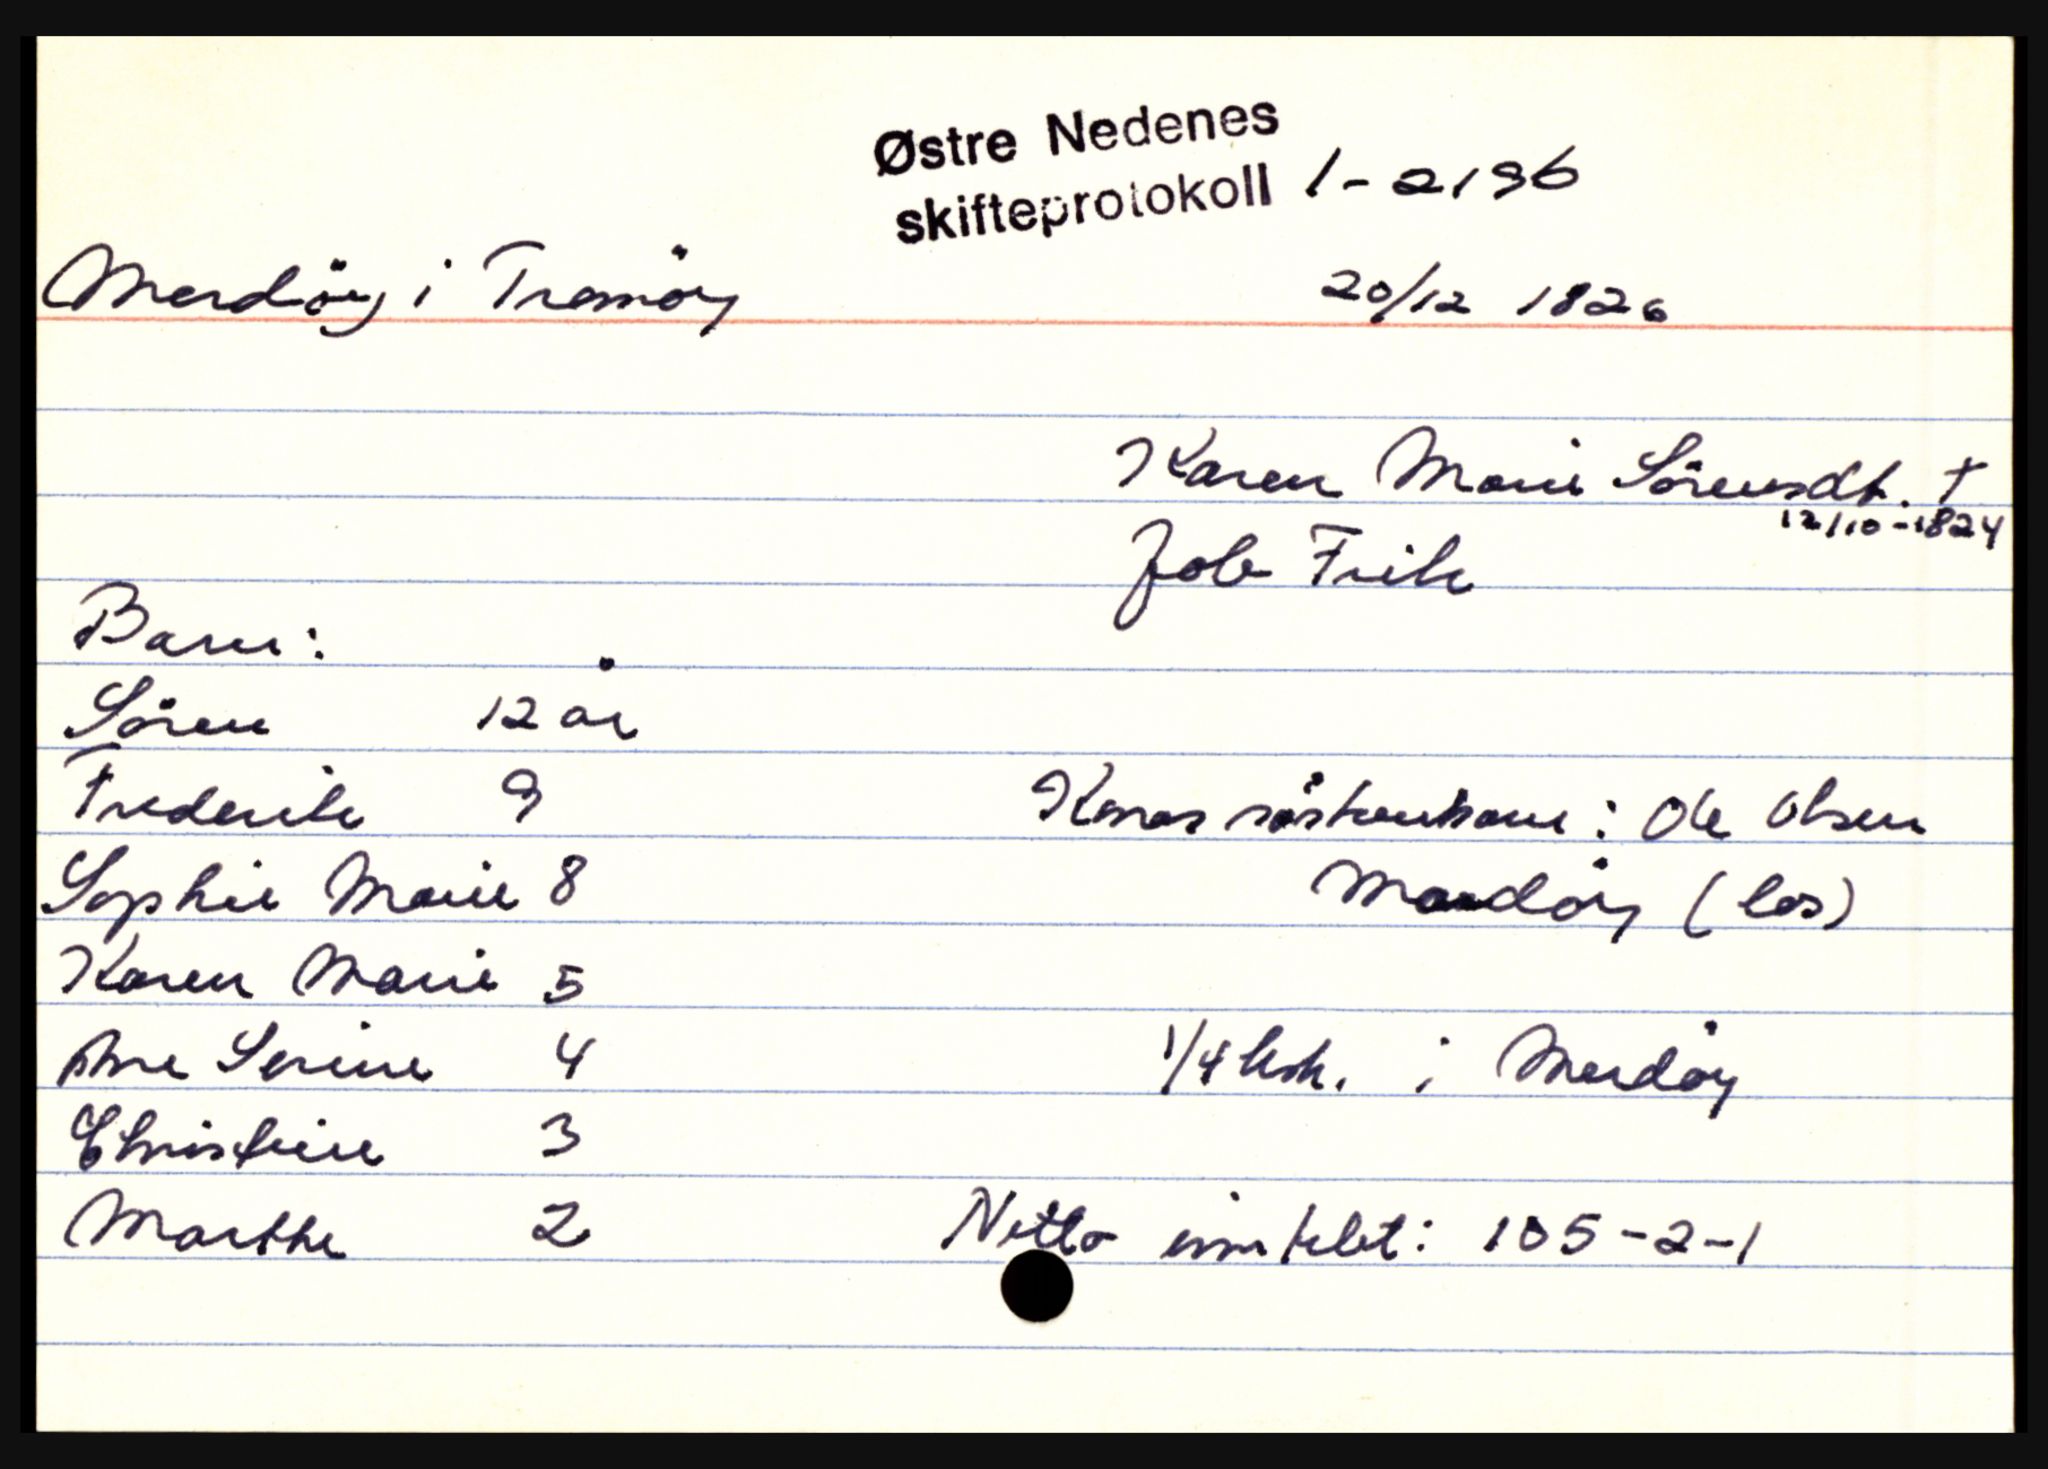 Østre Nedenes
skifteprotokoll 1-2196
Merdöy i Tromöy 20/12 1826
Karen Marie Sörensdt. †
12/10-1824
Job Frik
Barn:
Sören 12 år
Frederik 9
Konas söskenbarn: Ole Olsen
Sophie Marie 8
Merdöy (los)
Karen Marie 5
Ane Serine 4
1/4 hsh. i Merdöy
Christine 3
Marthe 2
Netto innteht: 105-2-1